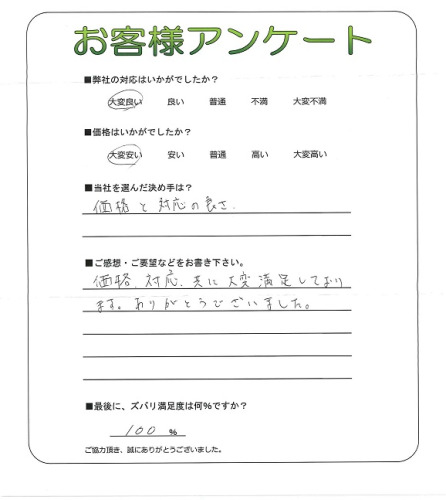 お客様アンケート
■弊社の対応はいかがでしたか？
大変良い 良い 普通 不満 大変不満
■価格はいかがでしたか？
大変安い 安い 普通 高い 大変高い
■当社を選んだ決め手は？
価格と対応の良さ.
■ご感想・ご要望などをお書き下さい。
価格、対応、共に大変満足しており
ます。ありがとうございました。
■最後に、ズバリ満足度は何%ですか？
100 %
ご協力頂き、誠にありがとうございました。